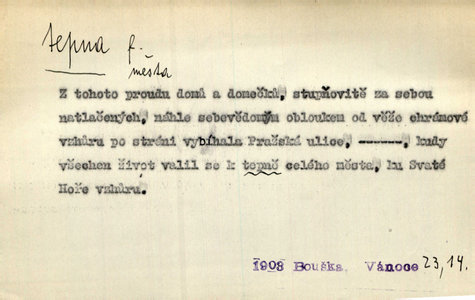 tepna f.
města
Z tohoto proudu domů a domečků, stupňovitě za sebou
natlačených, náhle sebevědomým obloukem od věže chrámové
vzhůru po stráni vybíhala Pražská ulice, ------, kudy
všechen život valil se k tepně celého města, ku Svaté
Hoře vzhůru.
1908 Bouška Vánoce 23,14.